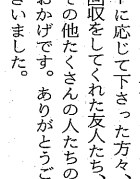 に応じて下さった方々、
回収をしてくれた友人たち、
その他たくさんの人たちの
おかげです。ありがとうご
ざいました。